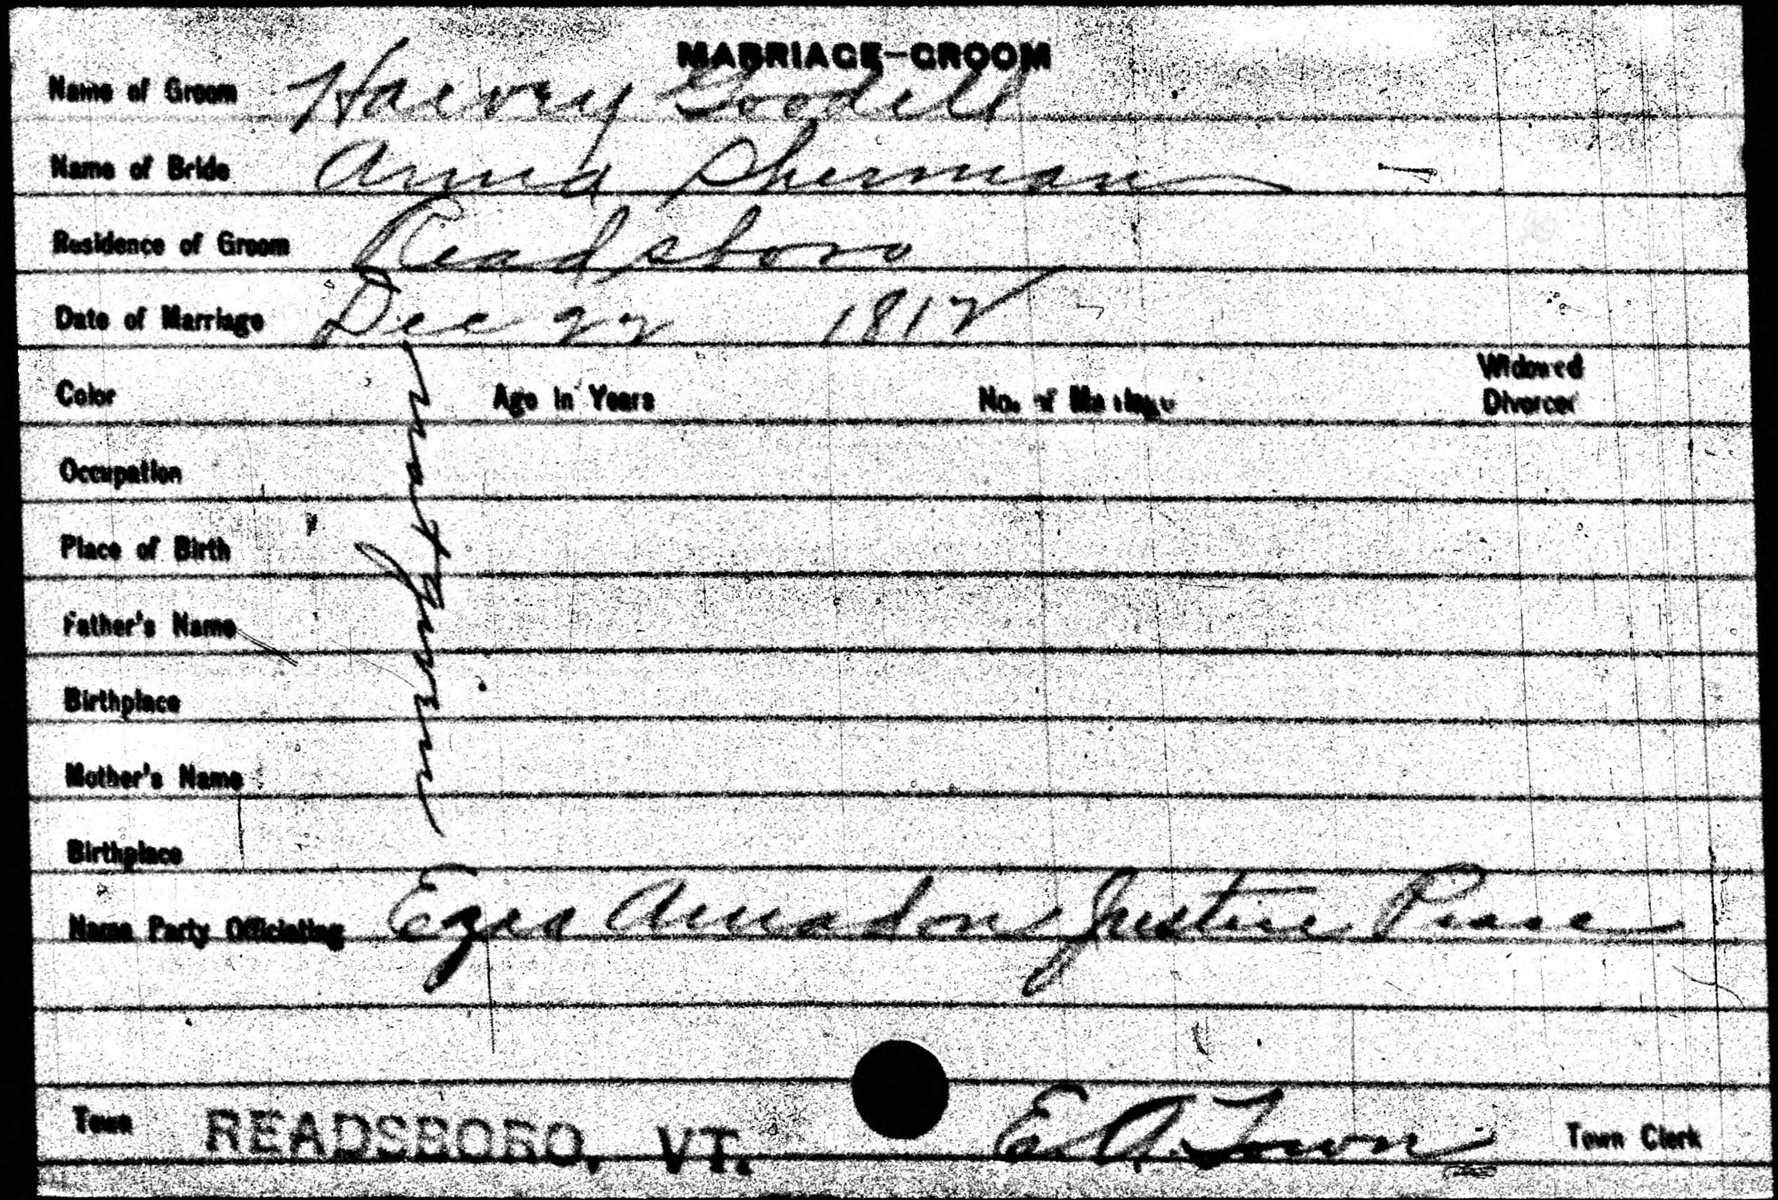 MARRIAGE-GROOM
Name of Groom Harvey Goodell
Name of Bride Anna Sherman
Residence of Groom Readsboro
Date of Marriage Dec 22 1812
Color Age in Years No. of Marriage Widowed Divorced
Occupation
Place of Birth
Father's Name
Birthplace
Mother's Name
Birthplace
not given
Name Party Officiating Ezra Amadon Justice Peace
Town READSBORO, VT. E. A. Town Town Clerk